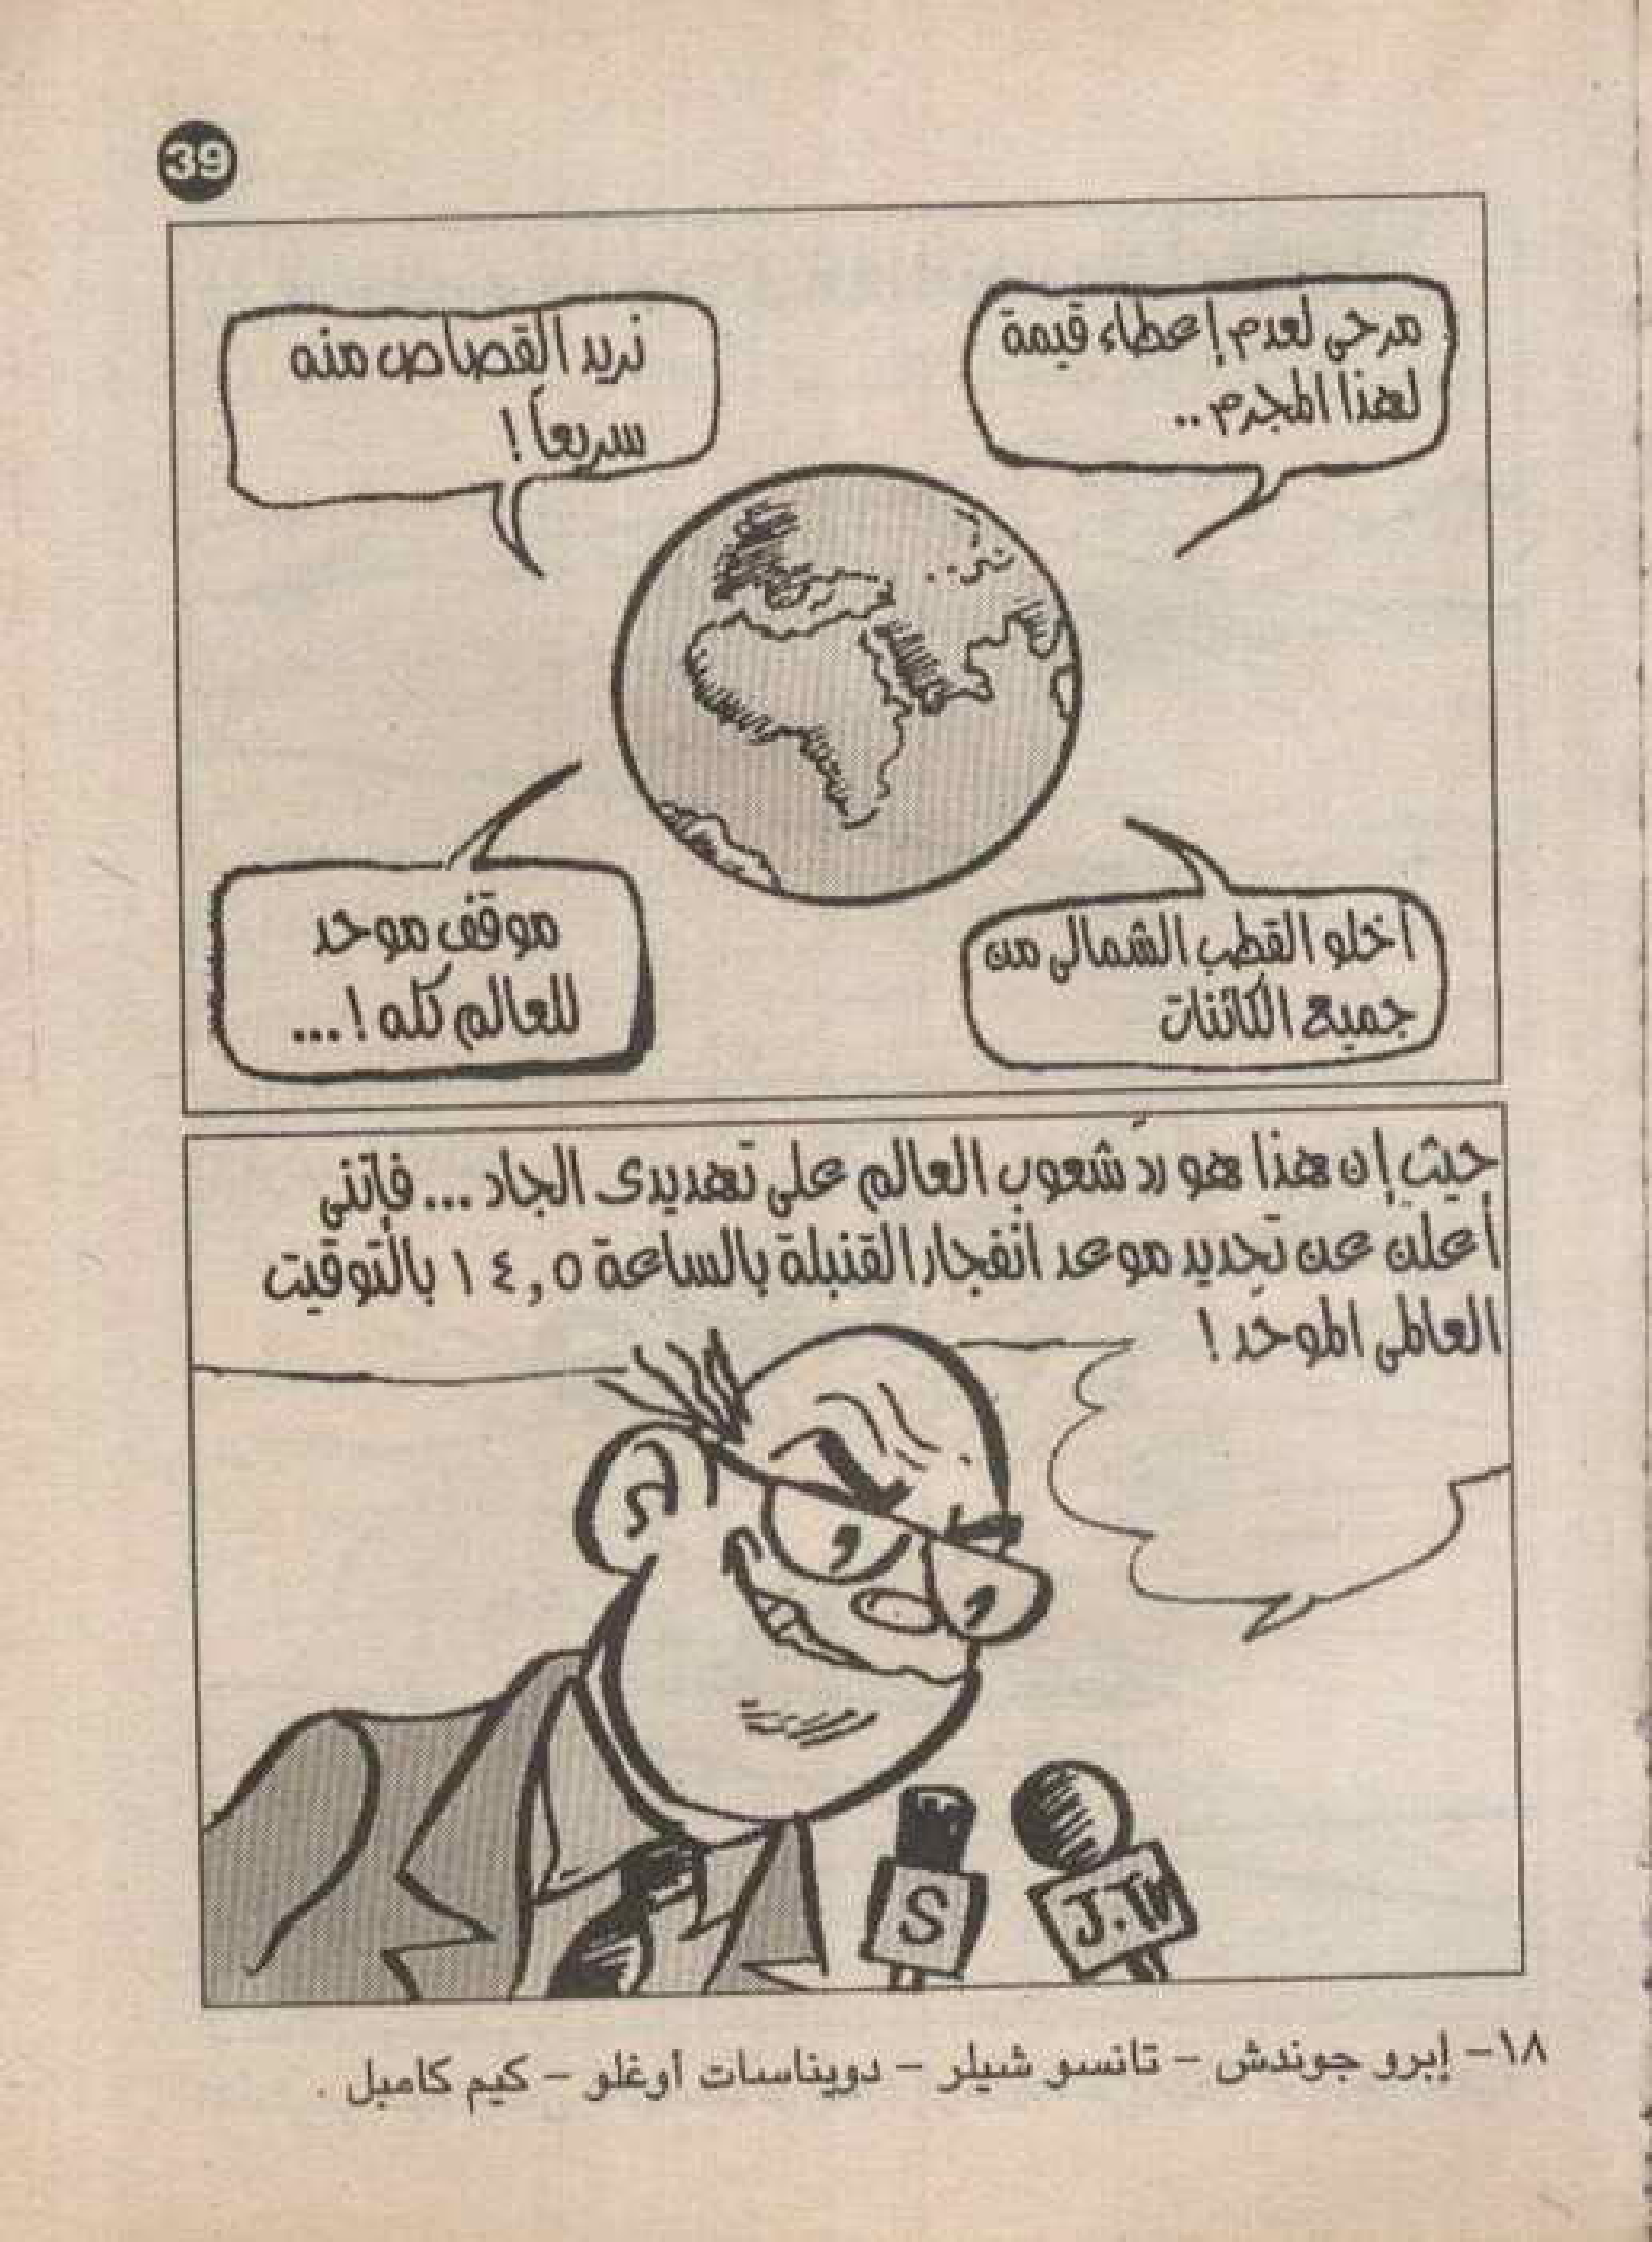 39
مرحى لعدم إعطاء قيمة
لهذا المجرم..
نريد القصاص منه
سريعاً!
أخلو القطب الشمالى من
جميع الكائنات
موقف موحد
للعالم كله!...
حيث إن هذا هو ردّ شعوب العالم على تهديدى الجاد... فإننى
أعلن عن تحديد موعد انفجار القنبلة بالساعة ١٤,٥ بالتوقيت
العالمى الموحّد!
S
J.TV
١٨- إبرو جوندش - تانسو شيلر - دويناسات أوغلو - كيم كامبل .